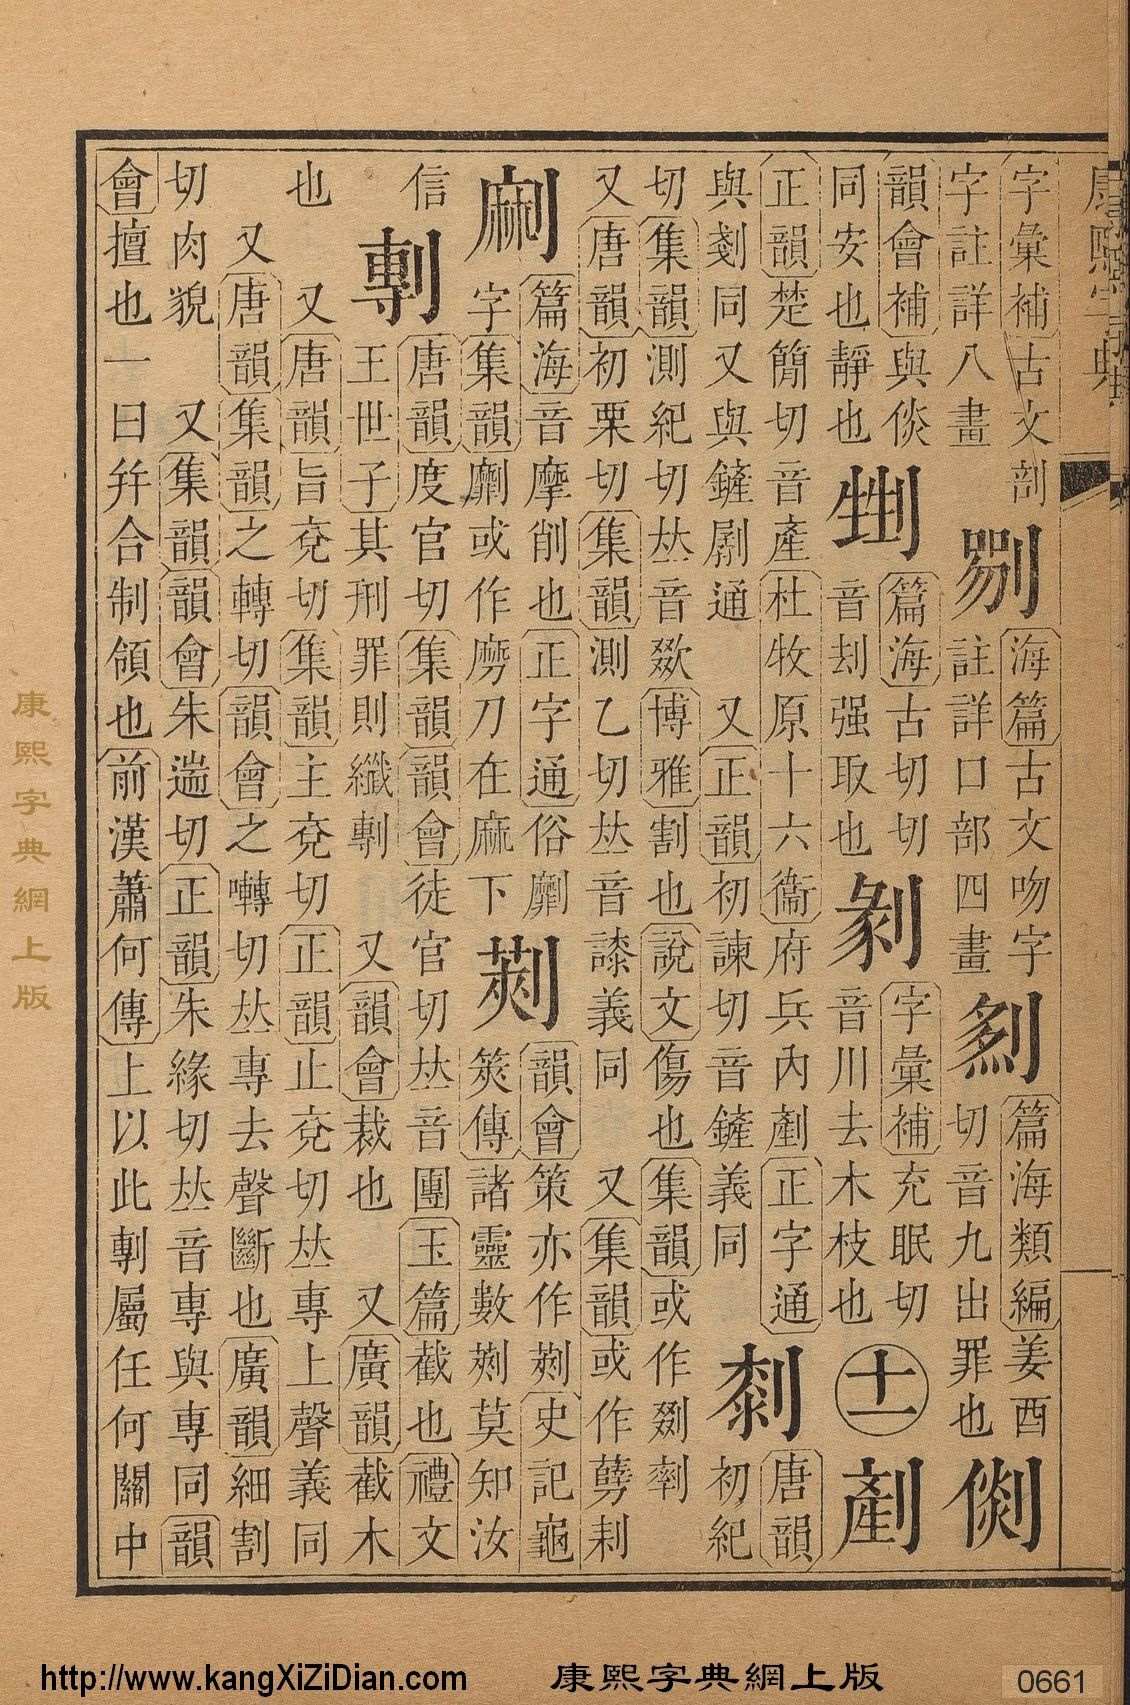 康熙字典
字彙補古文剖
字註詳八畫
海篇古文吻字
註詳口部四畫
篇海類編姜酉
切音九出罪也
韻會補與倓
同安也靜也
篇海古切切
音刦强取也
剶
字彙補充眠切
音川去木枝也
十一
剷
唐韻
正韻楚簡切音產杜牧原十六衞府兵內剷正字通
與剗同又與鏟劚通 又正韻初諫切音鏟義同
初紀
切集韻測紀切𠀤音欼博雅割也說文傷也集韻或作剟剺
又唐韻初栗切集韻測乙切𠀤音㯃義同 又集韻或作
篇海音摩削也正字通俗劘
字集韻劘或作㱺刀在麻下
韻會策亦作史記龜
筴傳諸靈數莫知汝
信
剸
唐韻度官切集韻韻會徒官切𠀤音團玉篇截也禮文
王世子其刑罪則纖剸 又韻會裁也 又廣韻截木
也 又唐韻旨兗切集韻主兗切正韻止兗切𠀤專上聲義同
又唐韻集韻之轉切韻會之囀切𠀤專去聲斷也廣韻細割
切肉貌 又集韻韻會朱遄切正韻朱緣切𠀤音專與專同韻
會擅也一曰幷合制領也前漢蕭何傳上以此剸屬任何關中
康熙字典網上版
http://www.kangXiZiDian.com 康熙字典網上版 0661